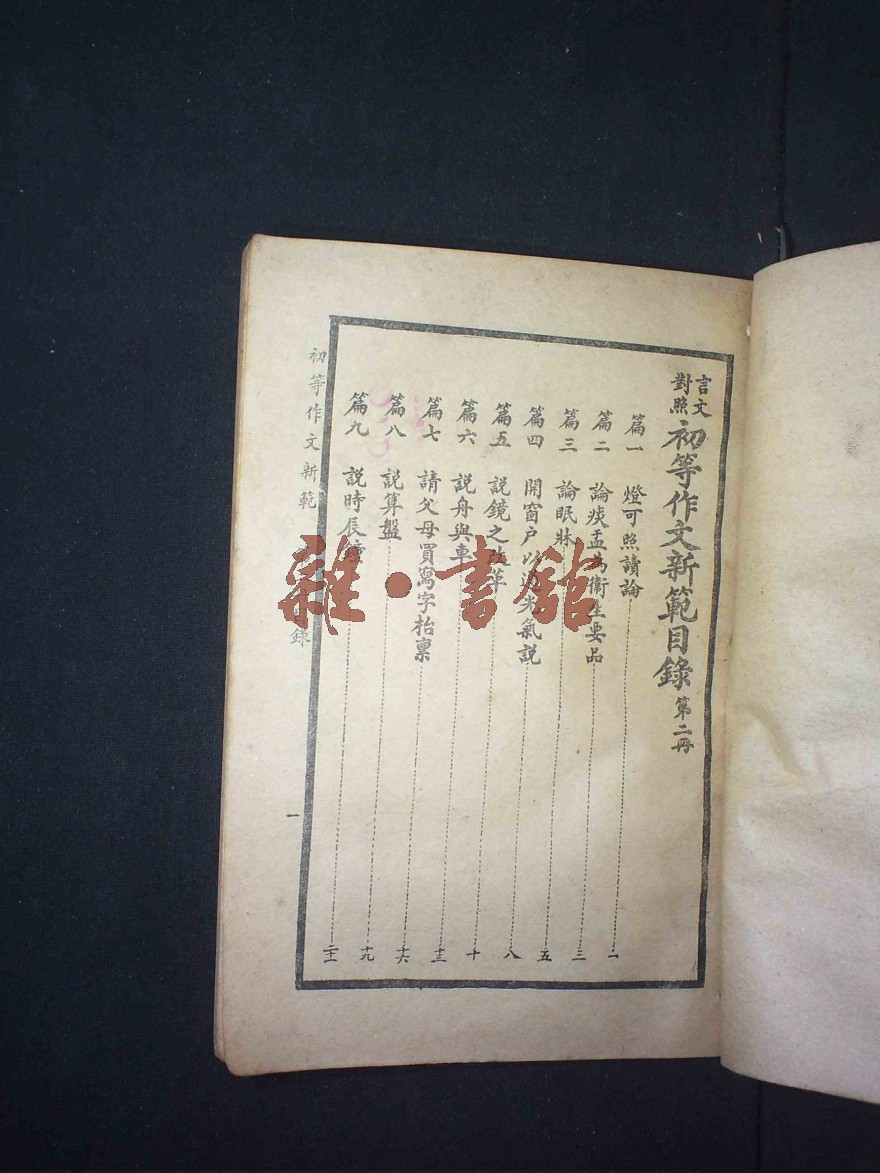 言文
對照
初等作文新範目錄 第二冊
篇一 燈可照讀論 一
篇二 論痰盂為衛生要品 三
篇三 論眠牀 五
篇四 開窗戶以通光氣說 八
篇五 說鏡之改革 十
篇六 說舟與車 十三
篇七 請父母買寫字枱稟 十六
篇八 說算盤 十九
篇九 說時辰鐘 二十一
初等作文新範 目錄
一
雜·書館